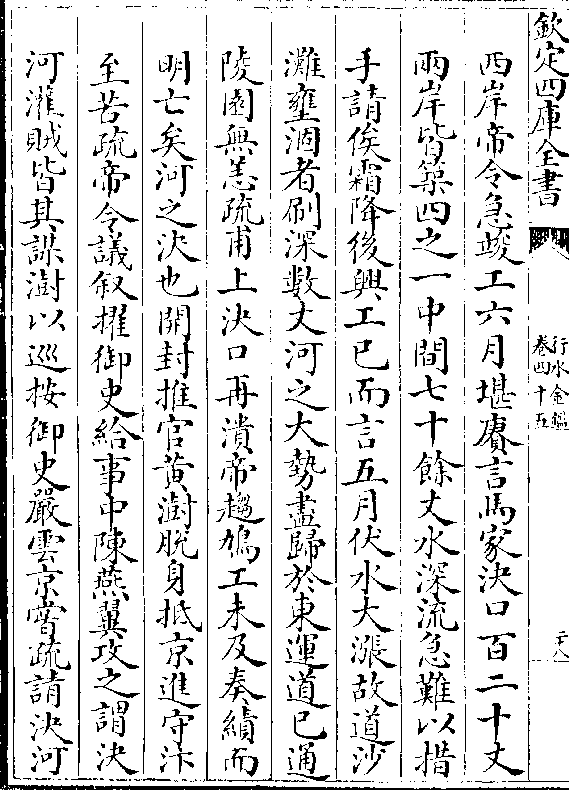 欽定四庫全書
行水金鑑
卷四十五
二八
西岸帝令急竣工六月堪賡言馬家決口百二十丈
兩岸皆築四之一中間七十餘丈水深流急難以措
手請俟霜降後興工已而言五月伏水大漲故道沙
灘壅涸者刷深數丈河之大勢盡歸於東運道已通
陵園無恙疏甫上決口再潰帝趨鳩工未及奏績而
明亡矣河之決也開封推官黃澍脫身抵京進守汴
至苦疏帝令議叙擢御史給事中陳燕翼攻之謂決
河灌賊皆其謀澍以巡按御史嚴雲京嘗疏請決河